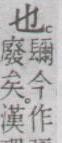 也
镾今作
廢矣。漢